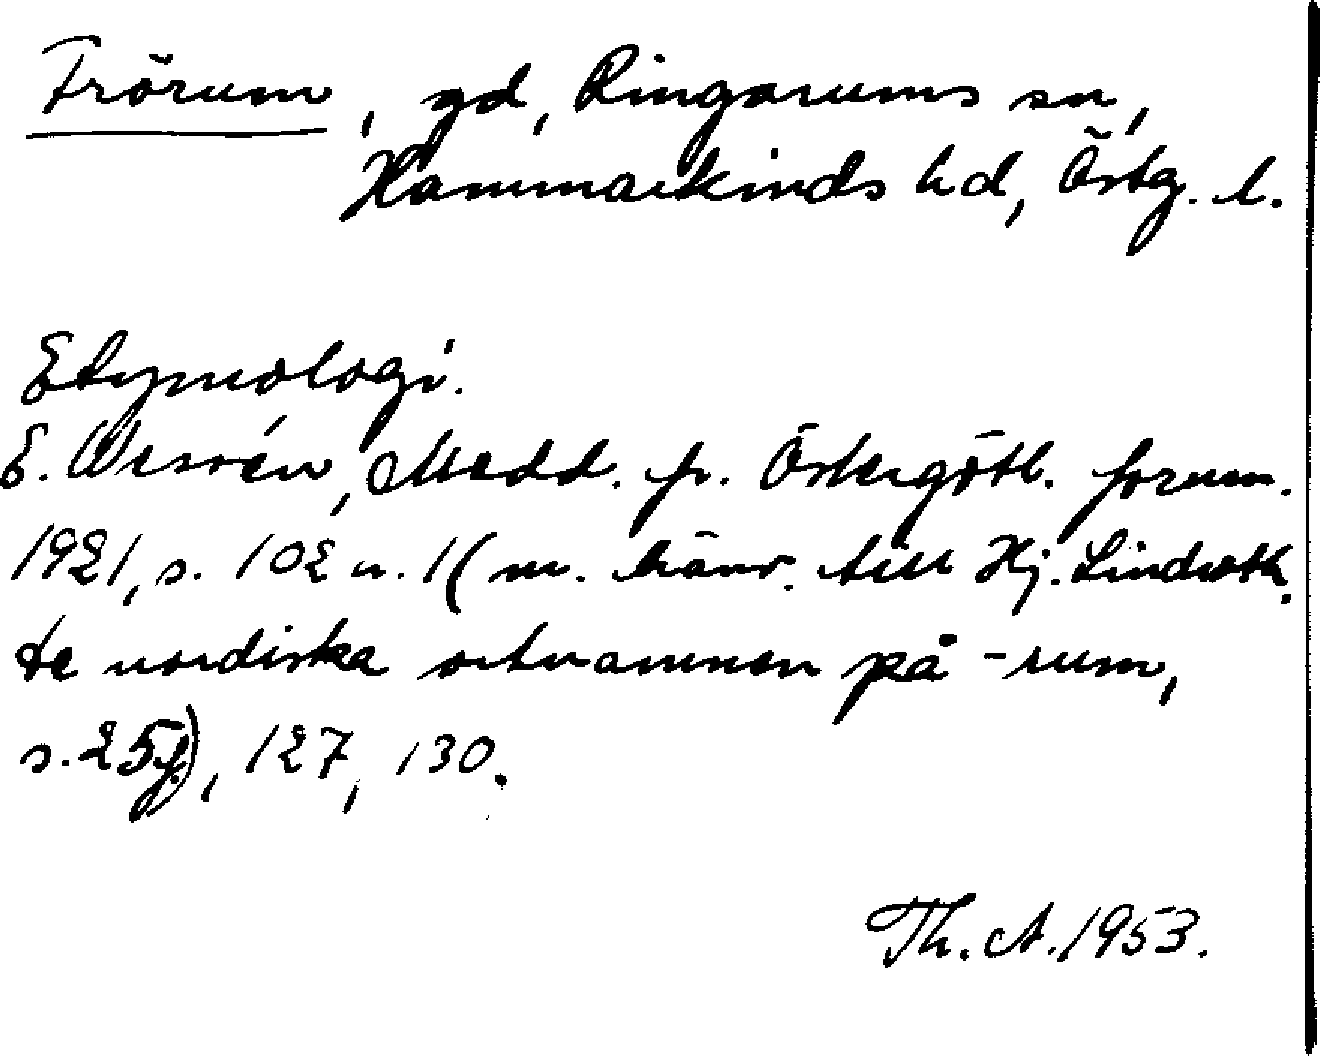 Frörum, gd, Ringarums sn,
Hammarkinds hd, Östg. l.
Etymologi.
E. Wessén, Medd. fr. Östergötl. fornm.
1921, s. 102 n. 1 (m. hänv. till Hj. Lindroth.
de nordiska ortnamnen på -rum,
s. 25 f.), 127, 130.
Th. A. 1953.